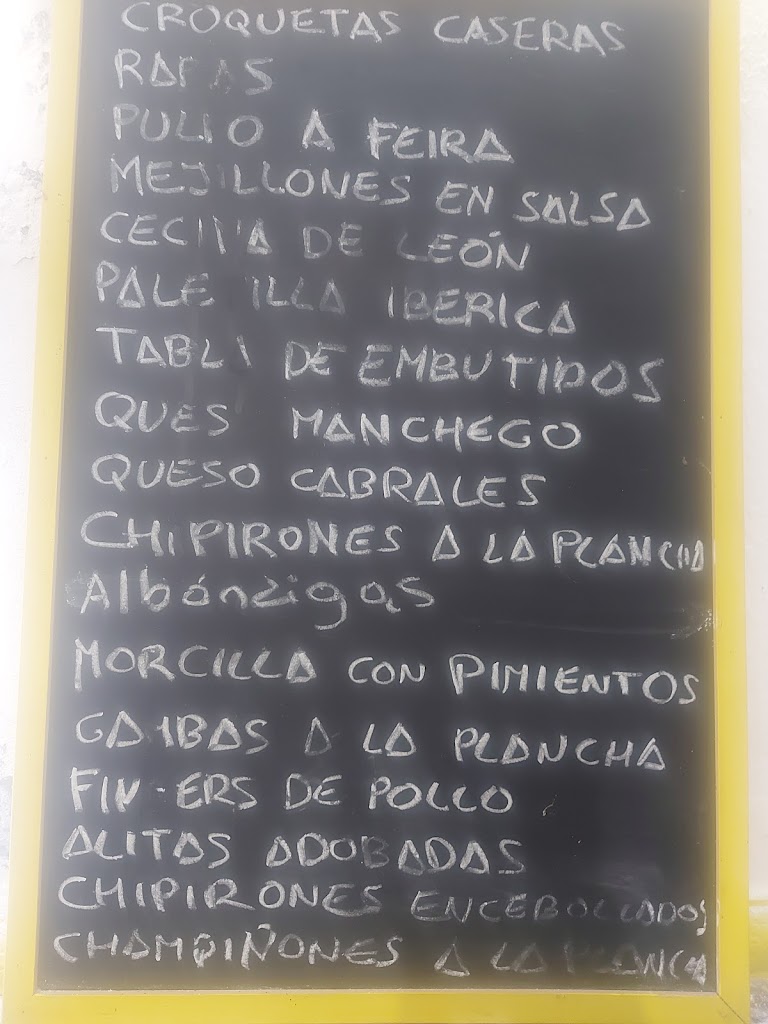 CROQUETAS CASERAS
RABAS
PULPO A FEIRA
MEJILLONES EN SALSA
CECINA DE LEÓN
PALETILLA IBERICA
TABLA DE EMBUTIDOS
QUESO MANCHEGO
QUESO CABRALES
CHIPIRONES A LA PLANCHA
Albónzigas
MORCILLA CON PIMIENTOS
GAMBAS A LA PLANCHA
FINGERS DE POLLO
ALITAS ADOBADAS
CHIPIRONES ENCEBOLLADOS
CHAMPIÑONES A LA PLANCHA